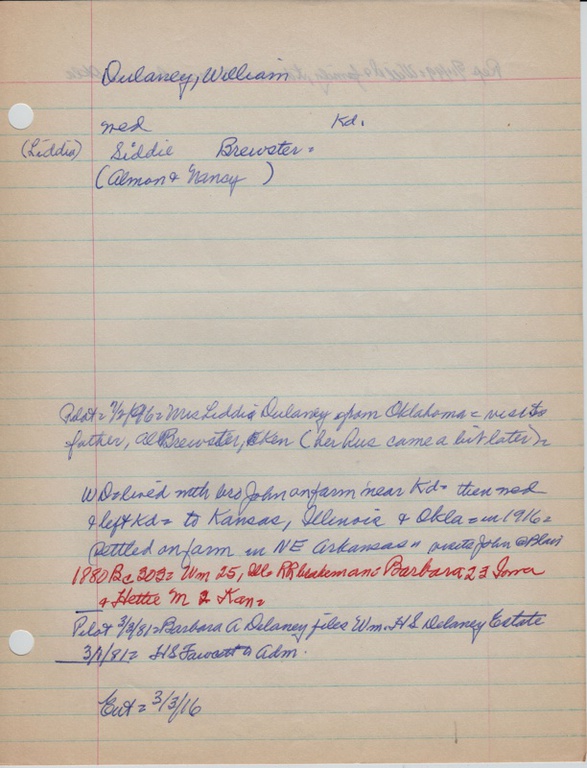 Dulaney, William
med Kd.
(Liddia) Liddie Brewster =
(Almon & Nancy )
Pilot = = Mrs Liddia Dulaney from Oklahoma = visits
father, Al Brewster, (her hus came a bit later) =
WD = lived with bro John on farm near Kd = then med
& left Kd = to Kansas, Illinois & Okla = in 1916 =
settled on farm in NE Arkansas = visits John @ Blair
1880 Bc 302 = Wm 25, Ills RR brakeman = Barbara 23 Iowa
& Hettie M 2 Kan =
Pilot 3/3/81 = Barbara A Delaney files Wm. H S Delaney Estate
3/ /81 = H S Fawcett Adm.
Ent = 3/3/16